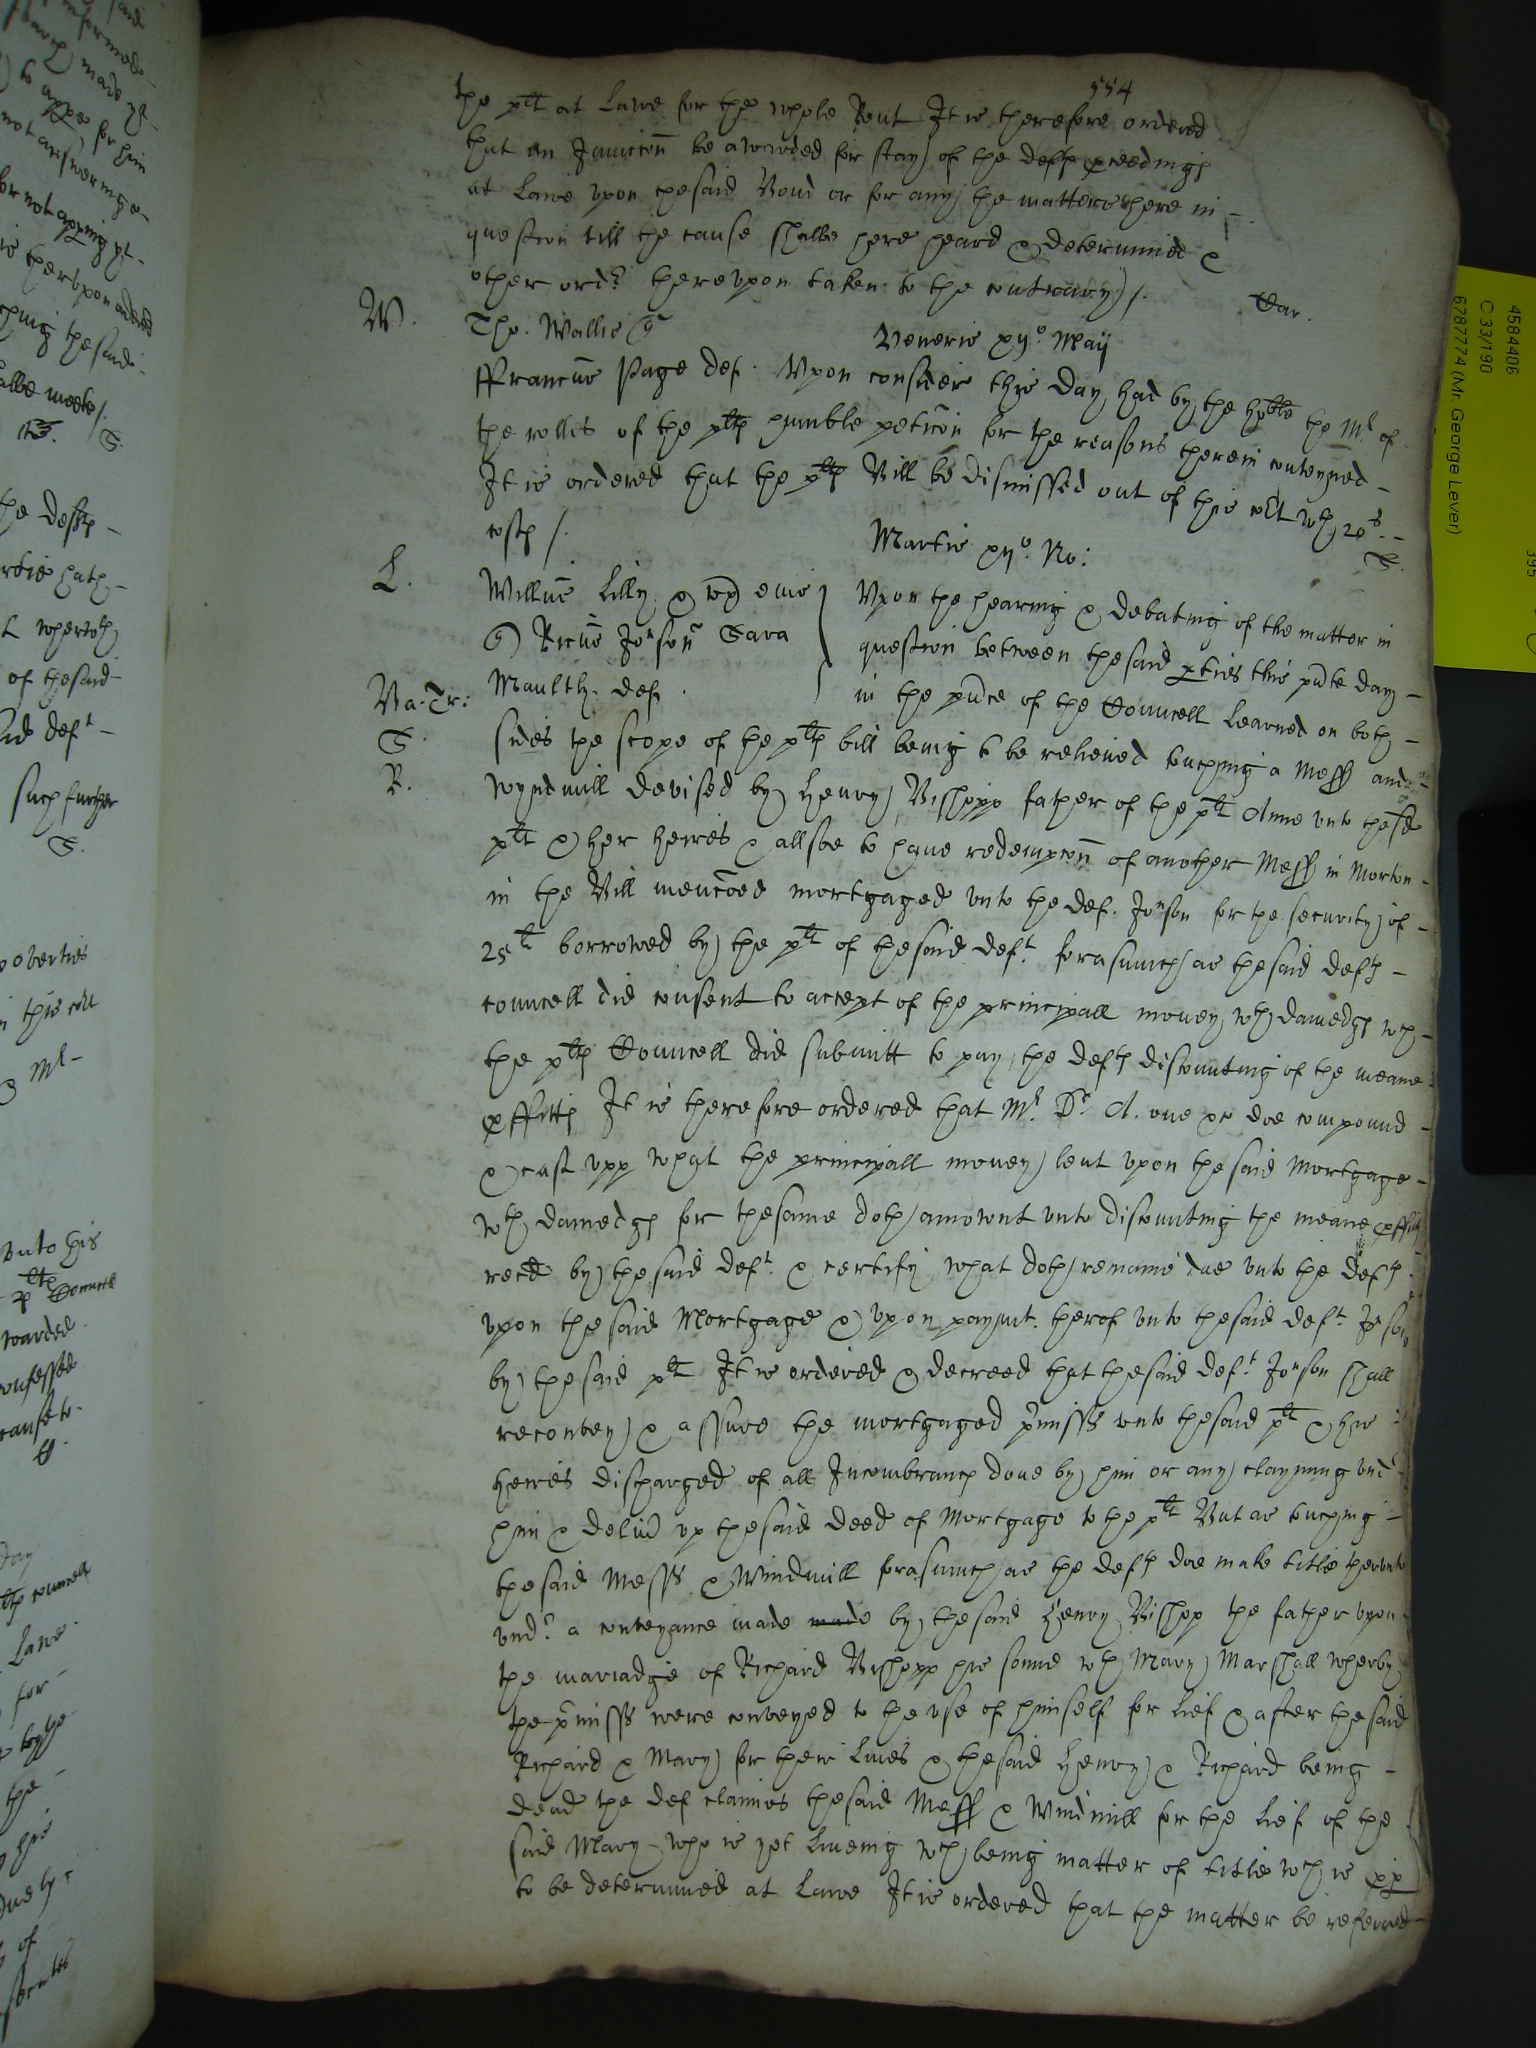 554
the plt at Lawe for the whole Rent It is therefore ordered
that an Iniuccon be awarded for stay of the defts pceedings
at Lawe vpon thesaid Bond or for any the matters here in
question till the cause shalbe here heard & determined &
other ordr herevpon taken to the contrary /.
W.
Tho. Wallis
Veneris xijo. Maij
ffrancus Page def. Vpon consider this day had by the hoble the Mr of
the rolles of the plts humble peticon for the reasons therein conteyned
It is ordered that the plts Bill be dismissed out of this cort wth 20s.
costs /.
Martis xijo. No:
L.
Willus Lilly & vx eius
Vpon the hearing & debating of the matter in
Ricus Jonson Sara
question between thesaid pties this pnte day
Va. Tr:
Maulth. def.
in the pnce of the Councell Learned on both
S.
sides the scope of the plts bill being to be relieued touching a Mess and
R.
wyndmill devised by Henry Bishopp father of the plt Anne vnto thesd
plt & her heires & allsoe to haue redempcon of another Mess in Morton
in the Bill menconed mortgaged vnto the def. Jonson for the security of
25li borrowed by the plt of thesaid deft. forasmuch as thesaid defts
councell did consent to accept of the principall money wth damedgs wch
the plts Councell did submitt to pay the defts discounting of the meane
pffitts It is therefore ordered that Mr. Dr. A. one &c doe compound
& cast vpp what the principall money lent vpon thesaid Mortgage
wth damedgs for thesame doth amount vnto discounting the meane pffitts
reced by thesaid deft. & certify what doth remaine due vnto the defts
vpon thesaid Mortgage & vpon paymt. therof vnto thesaid deft. Jonson
by thesaid plt It is ordered & decreed that thesaid deft. Jonson shall
reconvey & assure the mortgaged pmisss vnto thesaid plt & his
heires discharged of all Incombrancs done by him or any clayming vnd
him & deliu vp thesaid deed of Mortgage to the plt But as touching
thesaid Messs & Windmill forasmuch as the defts doe make title therunto
vndr a conveyance made made by thesaid Henry Bishopp the father vpon
the mariadge of Richard Bishopp his sonne wth Mary Marshall wherby
the pmisss were conveyed to the vse of himself for lief & after thesaid
Richard & Mary for their liues & thesaid Henry & Richard being
dead the def claimes thesaid Mess & Windmill for the lief of the
said Mary who is yet liueing wch being matter of title wch is pp
to be determined at Lawe It is ordered that the matter be referred
4584406
C 33/190
6787774 (Mr. George Lever)
395